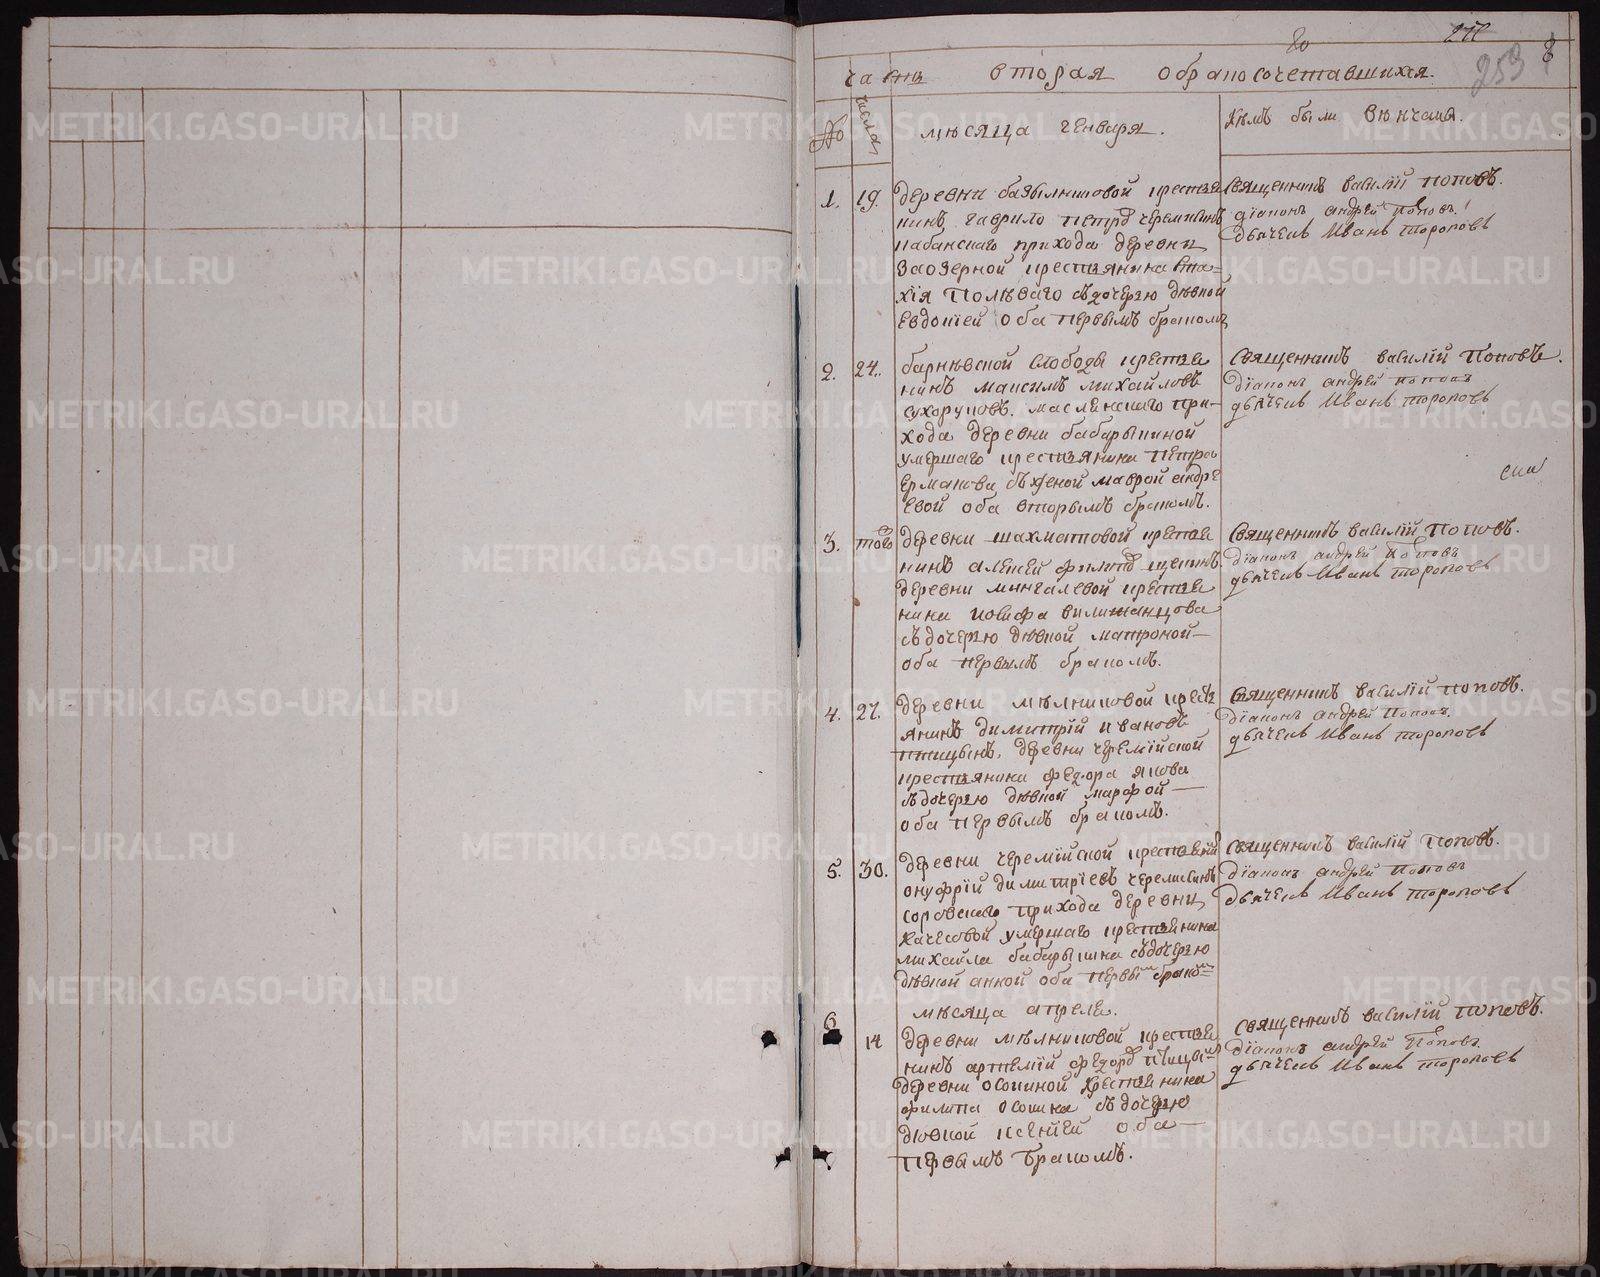 часть вторая о бракосочетавшихся.
253
№
числа
мѣсяца генваря.
кѣмъ были венчаны.
1.
19.
деревни базыликовой крестья
нинъ гаврило петровъ черемисинъ
кабанскаго прихода деревни
Заозерной крестьянина ева=
хія Полѣваго съ дочерью дѣвкой
Евдокіей оба первымъ бракомъ
Священникъ василій поповъ.
діаконъ андрей Поповъ.
дьячекъ Иванъ тороповъ
2.
24.
барневской слободы крестья
нинъ максимъ михайловъ
сухоруковъ. маслянскаго при-
хода деревни бабарыкиной
умершаго крестьянина петра
Ермакова съ женой маврой андре
евой оба вторымъ бракомъ.
Священникъ василій Поповъ.
діаконъ андрей поповъ
дьячекъ Иванъ тороповъ
3.
того
деревни шахматовой крестья
нинъ алексей филиповъ щекинъ
деревни мингалевой крестья
нина иосифа
съ дочерью дѣвкой матроной—
оба первымъ бракомъ.
Священникъ василій поповъ.
діаконъ андрей поповъ
дьячекъ Иванъ тороповъ
4.
27.
деревни мѣлниковой кресть
янинъ димитрій ивановъ
птицынъ. деревни черемійской
крестьянина федора якова
съ дочерью дѣвкой марфой—
оба первымъ бракомъ.
Священникъ василій поповъ.
діаконъ андрей поповъ.
дьячекъ Иванъ тороповъ
5.
30.
деревни черемійской крестьянинъ
онуфрій димитріевъ черемисинъ
соровскаго прихода деревни
качесовой умершаго крестьянина
михайла бабарыкина съ дочерью
дѣвкой анной оба первымъ бракомъ
Священникъ василій Поповъ.
діаконъ андрей поповъ
дьячекъ Иванъ тороповъ
мѣсяца апреля.
6
14
деревни мѣлниковой крестья
нинъ артемій федоровъ птицынъ
деревни осокиной крестьянина
филипа осокина съ дочерью
дѣвкой ксеніей оба—
первымъ бракомъ.
священникъ василій поповъ.
діаконъ андрей Поповъ
дьячекъ Иванъ тороповъ
METRIKI.GASO-URAL.RU